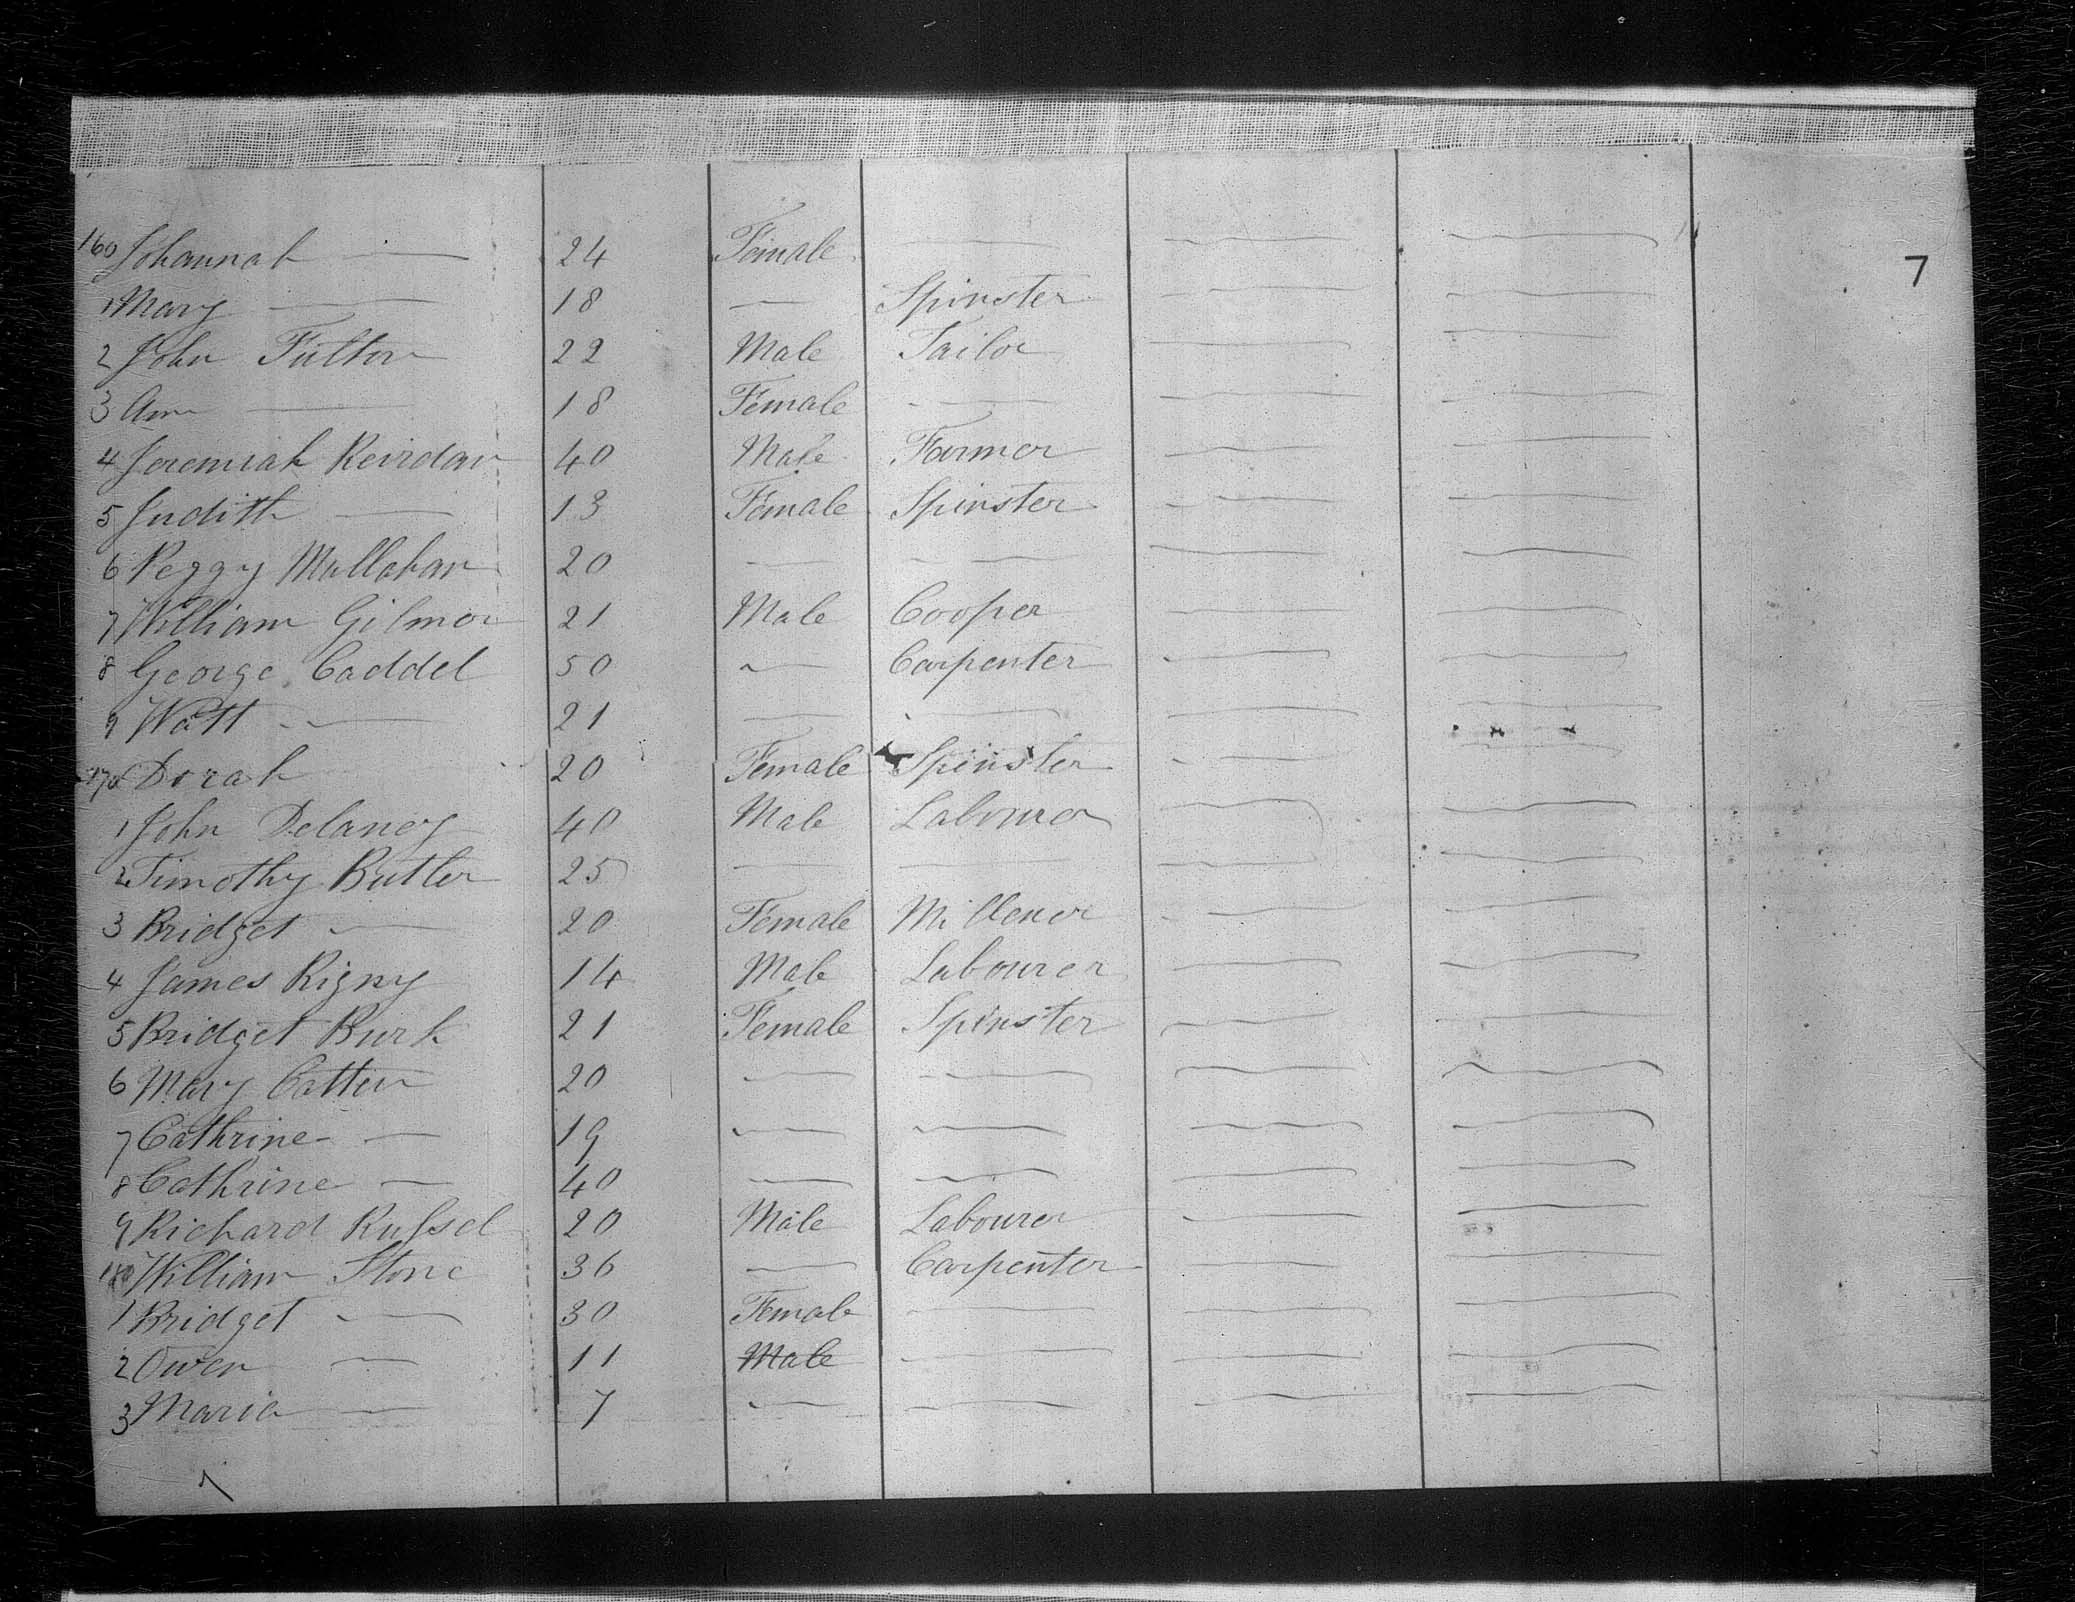 7
160 Johannah — 24 Female — — —
1 Mary — 18 — Spinster — —
2 John Fulton 22 Male Tailor — —
3 Ann — 18 Female — — —
4 Jeremiah Reirdan 40 Male Farmer — —
5 Judith — 13 Female Spinster — —
6 Peggy Mullahan 20 — — — —
7 William Gilmor 21 Male Cooper — —
8 George Caddel 50 — Carpenter — —
9 Watt — 21 — — — —
170 Dorah 20 Female Spinster — —
1 John Delaney 40 Male Labourer — —
2 Timothy Butler 25 — — — —
3 Bridget — 20 Female Millener — —
4 James Rigny 14 Male Labourer — —
5 Bridget Burk 21 Female Spinster — —
6 Mary Catten 20 — — — —
7 Cathrine — 19 — — — —
8 Cathrine — 40 — — — —
9 Richard Russel 20 Male Labourer — —
180 William Stone 36 — Carpenter — —
1 Bridget — 30 Female — — —
2 Owen — 11 Male — — —
3 Maria — 7 — — — —